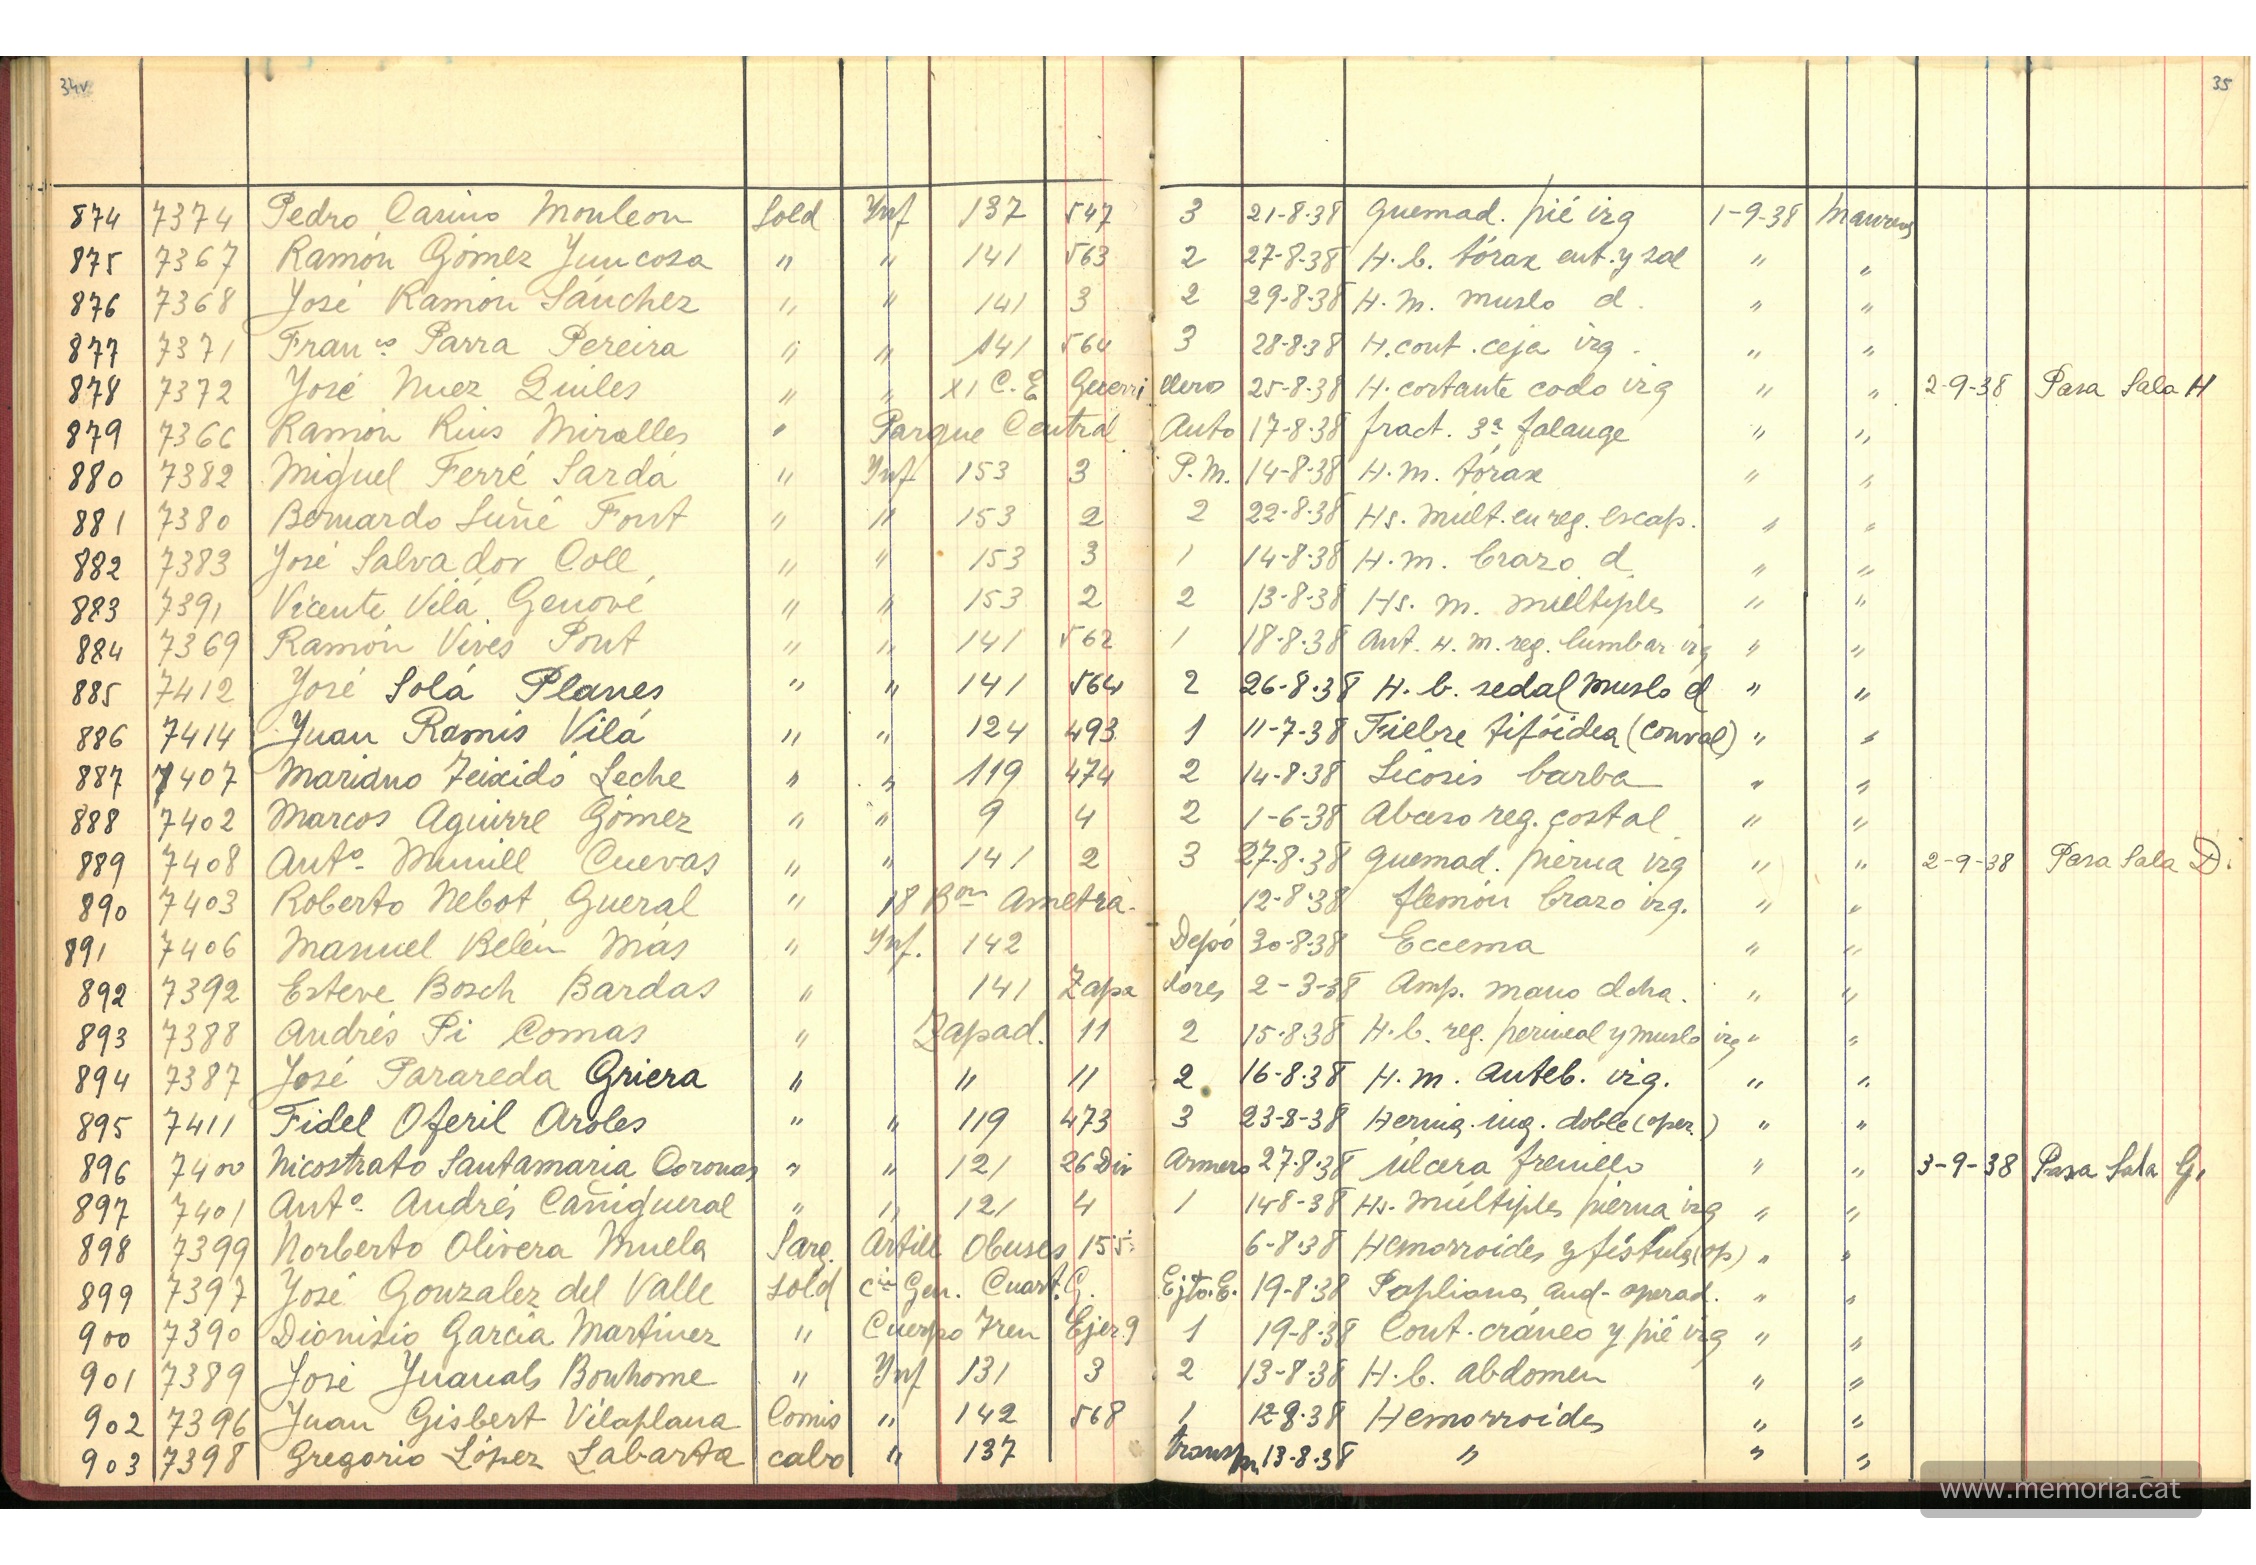 34v 35
874 7374 Pedro Carino Monleon Sold Ynf 137 547 3 21-8-38 quemad. pié izq 1-9-38
875 7367 Ramón Gómez Yuncosa " " 141 563 2 27-8-38 H. b. tórax ent. y sal " "
876 7368 José Ramón Sánchez " " 141 3 2 29-8-38 H. m. muslo d. " "
877 7371 Franco Parra Pereira " " 141 564 3 28-8-38 H. cont. ceja izq. " "
878 7372 José Nuez Quiles " " XI C. E Guerri lleros 25-8-38 H. cortante codo izq " " 2-9-38 Pasa Sala H
879 7366 Ramón Rius Miralles " Parque Central Auto 17-8-38 fract. 3ª falange " "
880 7382 Miguel Ferré Sardá " Ynf 153 3 P. M. 14-8-38 H. m. tórax " "
881 7380 Bernardo Suñé Font " " 153 2 2 22-8-38 Hs. múlt. en reg. escap. " "
882 7383 José Salvador Coll " " 153 3 1 14-8-38 H. m. brazo d. " "
883 7391 Vicente Vilá Genové " " 153 2 2 13-8-38 Hs. m. múltiples " "
884 7369 Ramón Vives Pont " " 141 562 1 18-8-38 Ant. H. m. reg. lumbar izq " "
885 7412 José Solá Planes " " 141 564 2 26-8-38 H. b. sedal muslo d " "
886 7414 Juan Ramis Vilá " " 124 493 1 11-7-38 Fiebre tifóidea (conval) " "
887 7407 Mariano Teixidó Leche " " 119 474 2 14-8-38 Sicosis barba " "
888 7402 Marcos Aguirre Gómez " " 9 4 2 1-6-38 Abceso reg. costal " "
889 7408 Antº Munill Cuevas " " 141 2 3 27-8-38 quemad. pierna izq " " 2-9-38 Pasa Sala D.
890 7403 Roberto Nebot Gueral " 18 Bon Ametra. 12-8-38 flemón brazo izq. " "
891 7406 Manuel Belén Más " Ynf. 142 Depó 30-8-38 Eccema " "
892 7392 Esteve Bosch Bardas " 141 Zapa dores 2-3-38 Amp. mano dcha. " "
893 7388 Andrés Pi Comas " Zapad. 11 2 15-8-38 H. b. reg. perineal y muslo izq " "
894 7387 José Parareda Griera " " 11 2 16-8-38 H. m. anteb. izq. " "
895 7411 Fidel Oferil Aroles " " 119 473 3 23-8-38 Hernia ing. doble (oper.) " "
896 7400 Nicostrato Santamaria Coronas " " 121 26 Div Armero 27-8-38 úlcera frenillo " " 3-9-38 Pasa Sala G.
897 7401 Antº Andrés Cañigueral " " 121 4 1 14-8-38 Hs. múltiples pierna izq " "
898 7399 Norberto Olivera Muela Sarg. Artill Obuses 155 6-8-38 Hemorroides y fístula (op) " "
899 7397 José Gonzalez del Valle Sold Cía Gen. Cuart. G. Ejto. E. 19-8-38 operad. " "
900 7390 Dionisio García Martinez " Cuerpo Tren Ejer. 9 1 19-8-38 Cont. cráneo y pié izq " "
901 7389 José Juanals Bonhome " Ynf 131 3 2 13-8-38 H. b. abdomen " "
902 7396 Juan Gisbert Vilaplana Comis " 142 568 1 12-8-38 Hemorroides " "
903 7398 Gregorio López Labarta cabo " 137 13-8-38 " " "
www.memoria.cat